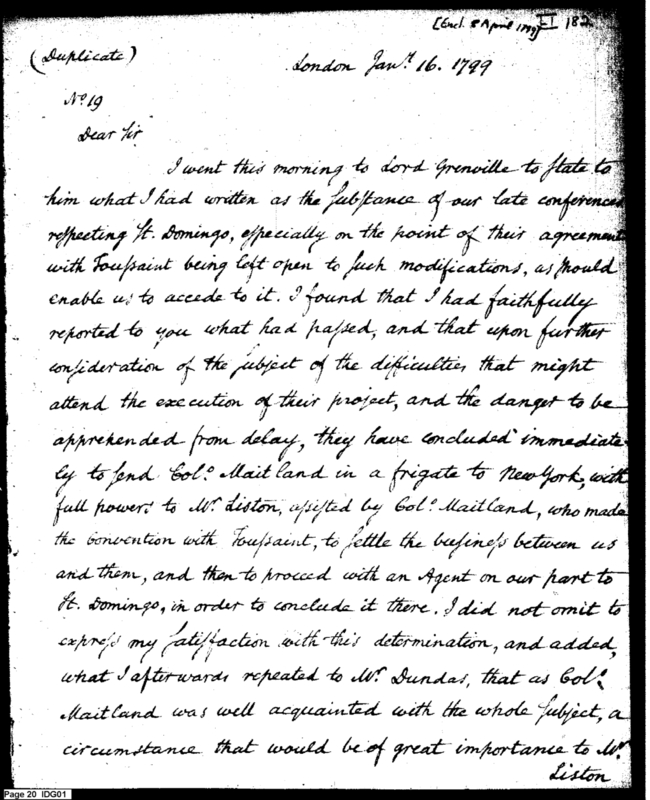 [Encl. 8 April 1799] II 182
(Duplicate)
London Janʸ. 16. 1799
Nº 19
Dear Sir
I went this morning to Lord Grenville to state to
him what I had written as the substance of our late conferences
respecting St. Domingo, especially on the point of their agreement
with Toussaint being left open to such modifications, as should
enable us to accede to it. I found that I had faithfully
reported to you what had passed, and that upon further
consideration of the subject of the difficulties that might
attend the execution of their project, and the danger to be
apprehended from delay, they have concluded immediate-
ly to send Colº. Maitland in a frigate to New York, with
full powers to Mʳ. Liston, assisted by Colº. Maitland, who made
the convention with Toussaint, to settle the business between us
and them, and then to proceed with an Agent on our part to
St. Domingo, in order to conclude it there. I did not omit to
express my satisfaction with this determination, and added,
what I afterwards repeated to Mʳ. Dundas, that as Colº.
Maitland was well acquainted with the whole subject, a
circumstance that would be of great importance to Mʳ.
Liston
Page 20 IDG01